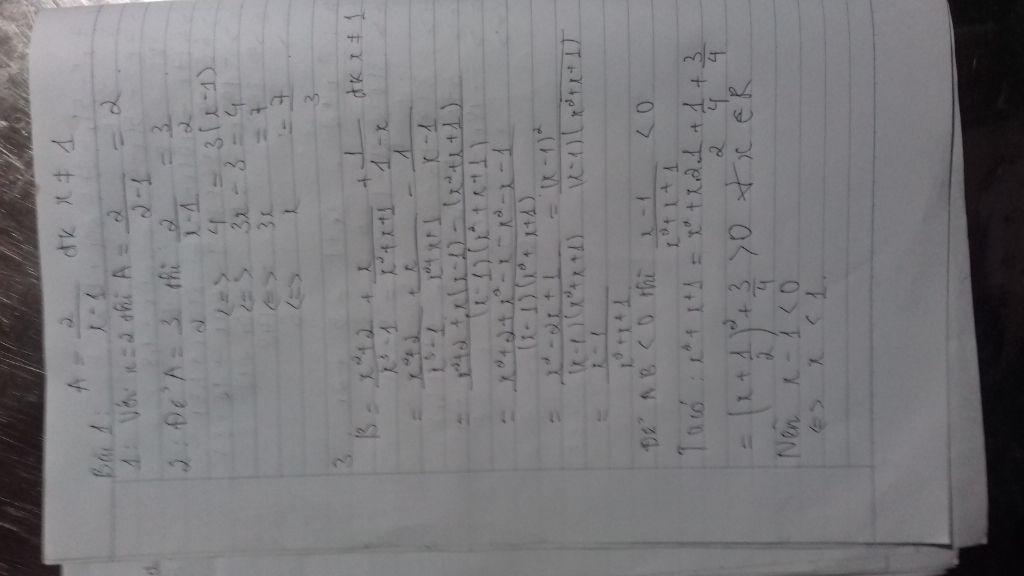 Bài 1: A = 2/(x-1) đk x ≠ 1
1: Với x=2 thì A = 2/(2-1) = 2
2: Để A = 3/2 thì 2/(x-1) = 3/2
<=> 4 = 3(x-1)
<=> 3x - 3 = 4
<=> 3x = 7
<=> x = 7/3
3.
B = (x²+2)/(x³-1) + x/(x²+x+1) + 1/(1-x) đk x ≠ 1
= (x²+2)/(x³-1) + x/(x²+x+1) - 1/(x-1)
= (x²+2+x(x-1)-(x²+x+1))/((x-1)(x²+x+1))
= (x²+2+x²-x-x²-x-1)/((x-1)(x²+x+1))
= (x²-2x+1)/((x-1)(x²+x+1)) = (x-1)²/((x-1)(x²+x+1))
= (x-1)/(x²+x+1)
Để AB < 0 thì (x-1)/(x²+x+1) < 0
Ta có: x²+x+1 = x²+x2.1/2+1/4+3/4
= (x+1/2)²+3/4 > 0 ∀x ∈ R
Nên x-1 < 0
<=> x < 1.